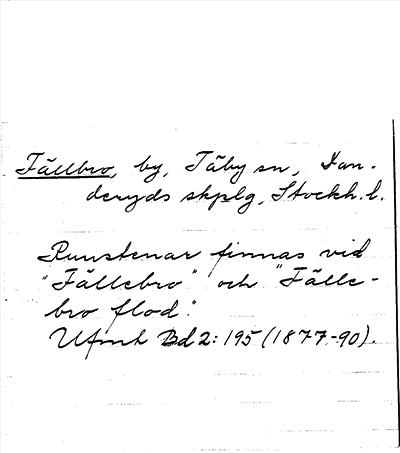 Fällbro, by, Täby sn, Dan-
deryds skplg, Stockh. l.
Runstenar finnas vid
"Fällebro" och "Fälle-
bro flod."
Ufmt Bd 2: 195 (1877-90).